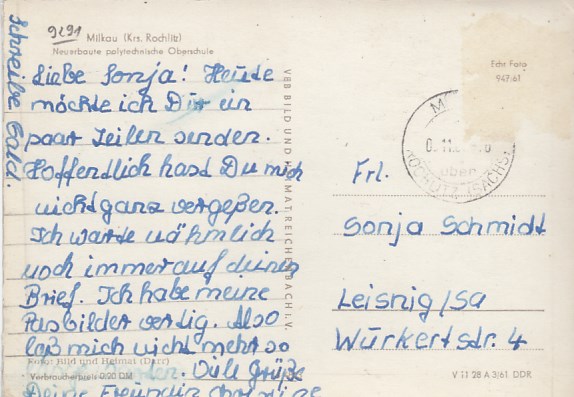 9291
Milkau (Krs. Rochlitz)
Neuerbaute polytechnische Oberschule
Liebe Sonja! Heute
möchte ich Dir ein
paar Zeilen senden.
Hoffendlich hast Du mich
nicht ganz vergeßen.
Ich warte nähmlich
noch immer auf deinen
Brief. Ich habe meine
Pasbilder vertig. Also
laß mich nicht mehr so
Viele Grüße
Deine Freundin
Schreibe bald.
Foto: Bild und Heimat (Dörr)
Verbraucherpreis 0.20 DM
VEB BILD UND HEIMAT REICHENBACH I. V.
Echt Foto
947/61
über
ROCHLITZ (SACHS)
Frl.
Sonja Schmidt
Leisnig/Sa
Würkertstr. 4
V 11 28 A 3/61 DDR